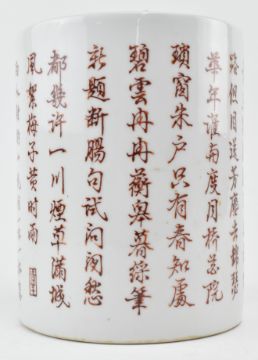 路但目送芳塵去錦瑟
華年誰與度月橋花院
瑣窗朱户只有春知處
碧雲冉冉蘅皋暮彩筆
新題斷腸句試問閒愁
都幾許一川煙草滿城
風絮梅子黄时雨